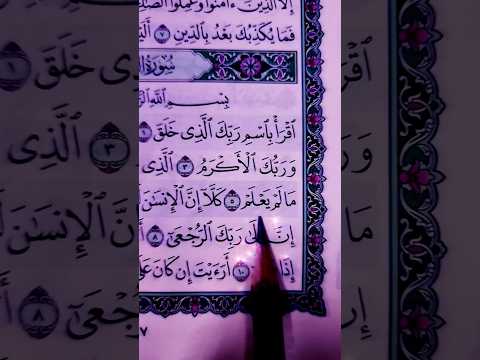 إِلَّا ٱلَّذِينَ ءَامَنُوا۟ وَعَمِلُوا۟
فَمَا يُكَذِّبُكَ بَعْدُ بِٱلدِّينِ ٧
سُورَةُ
بِسْمِ ٱللَّهِ
ٱقْرَأْ بِٱسْمِ رَبِّكَ ٱلَّذِى خَلَقَ ١
وَرَبُّكَ ٱلْأَكْرَمُ ٣ ٱلَّذِى
مَا لَمْ يَعْلَمْ ٥ كَلَّآ إِنَّ ٱلْإِنسَٰنَ
إِنَّ رَبِّكَ ٱلرُّجْعَىٰٓ ٨
إِذَا ١٠ أَرَءَيْتَ إِن كَانَ عَلَى